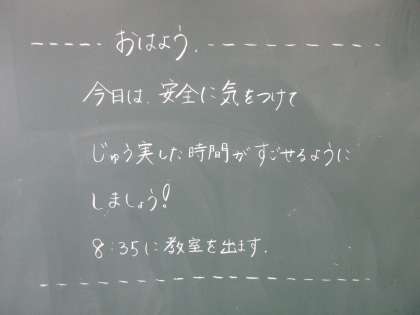 おはよう.
今日は、安全に気をつけて
じゅう実した時間がすごせるように
しましょう!
8:35に教室を出ます.